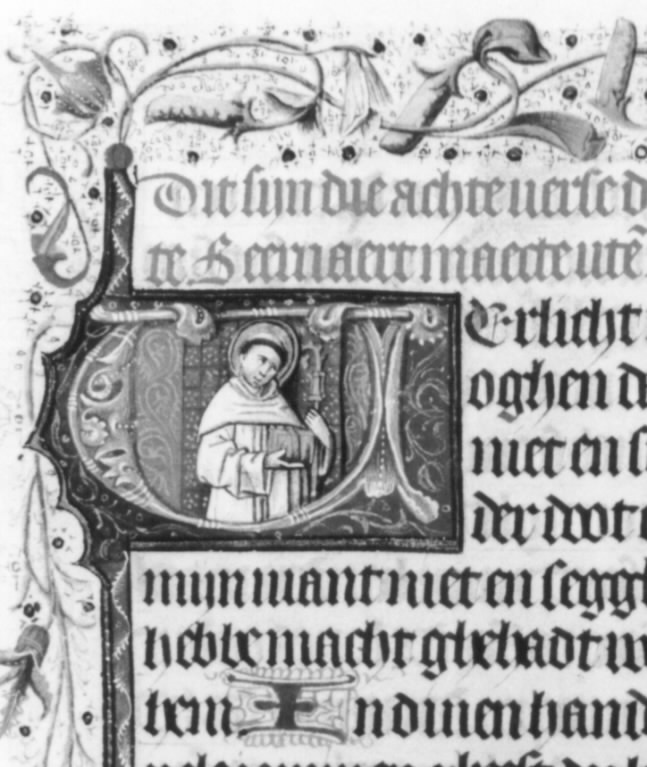 Dit sijn die achte uerse d
te Bernaert maecte utē
Uerlicht
oghen d
niet en s
der doot
mijn want niet en seggh
hebbe macht ghehadt
hem In dinen hand